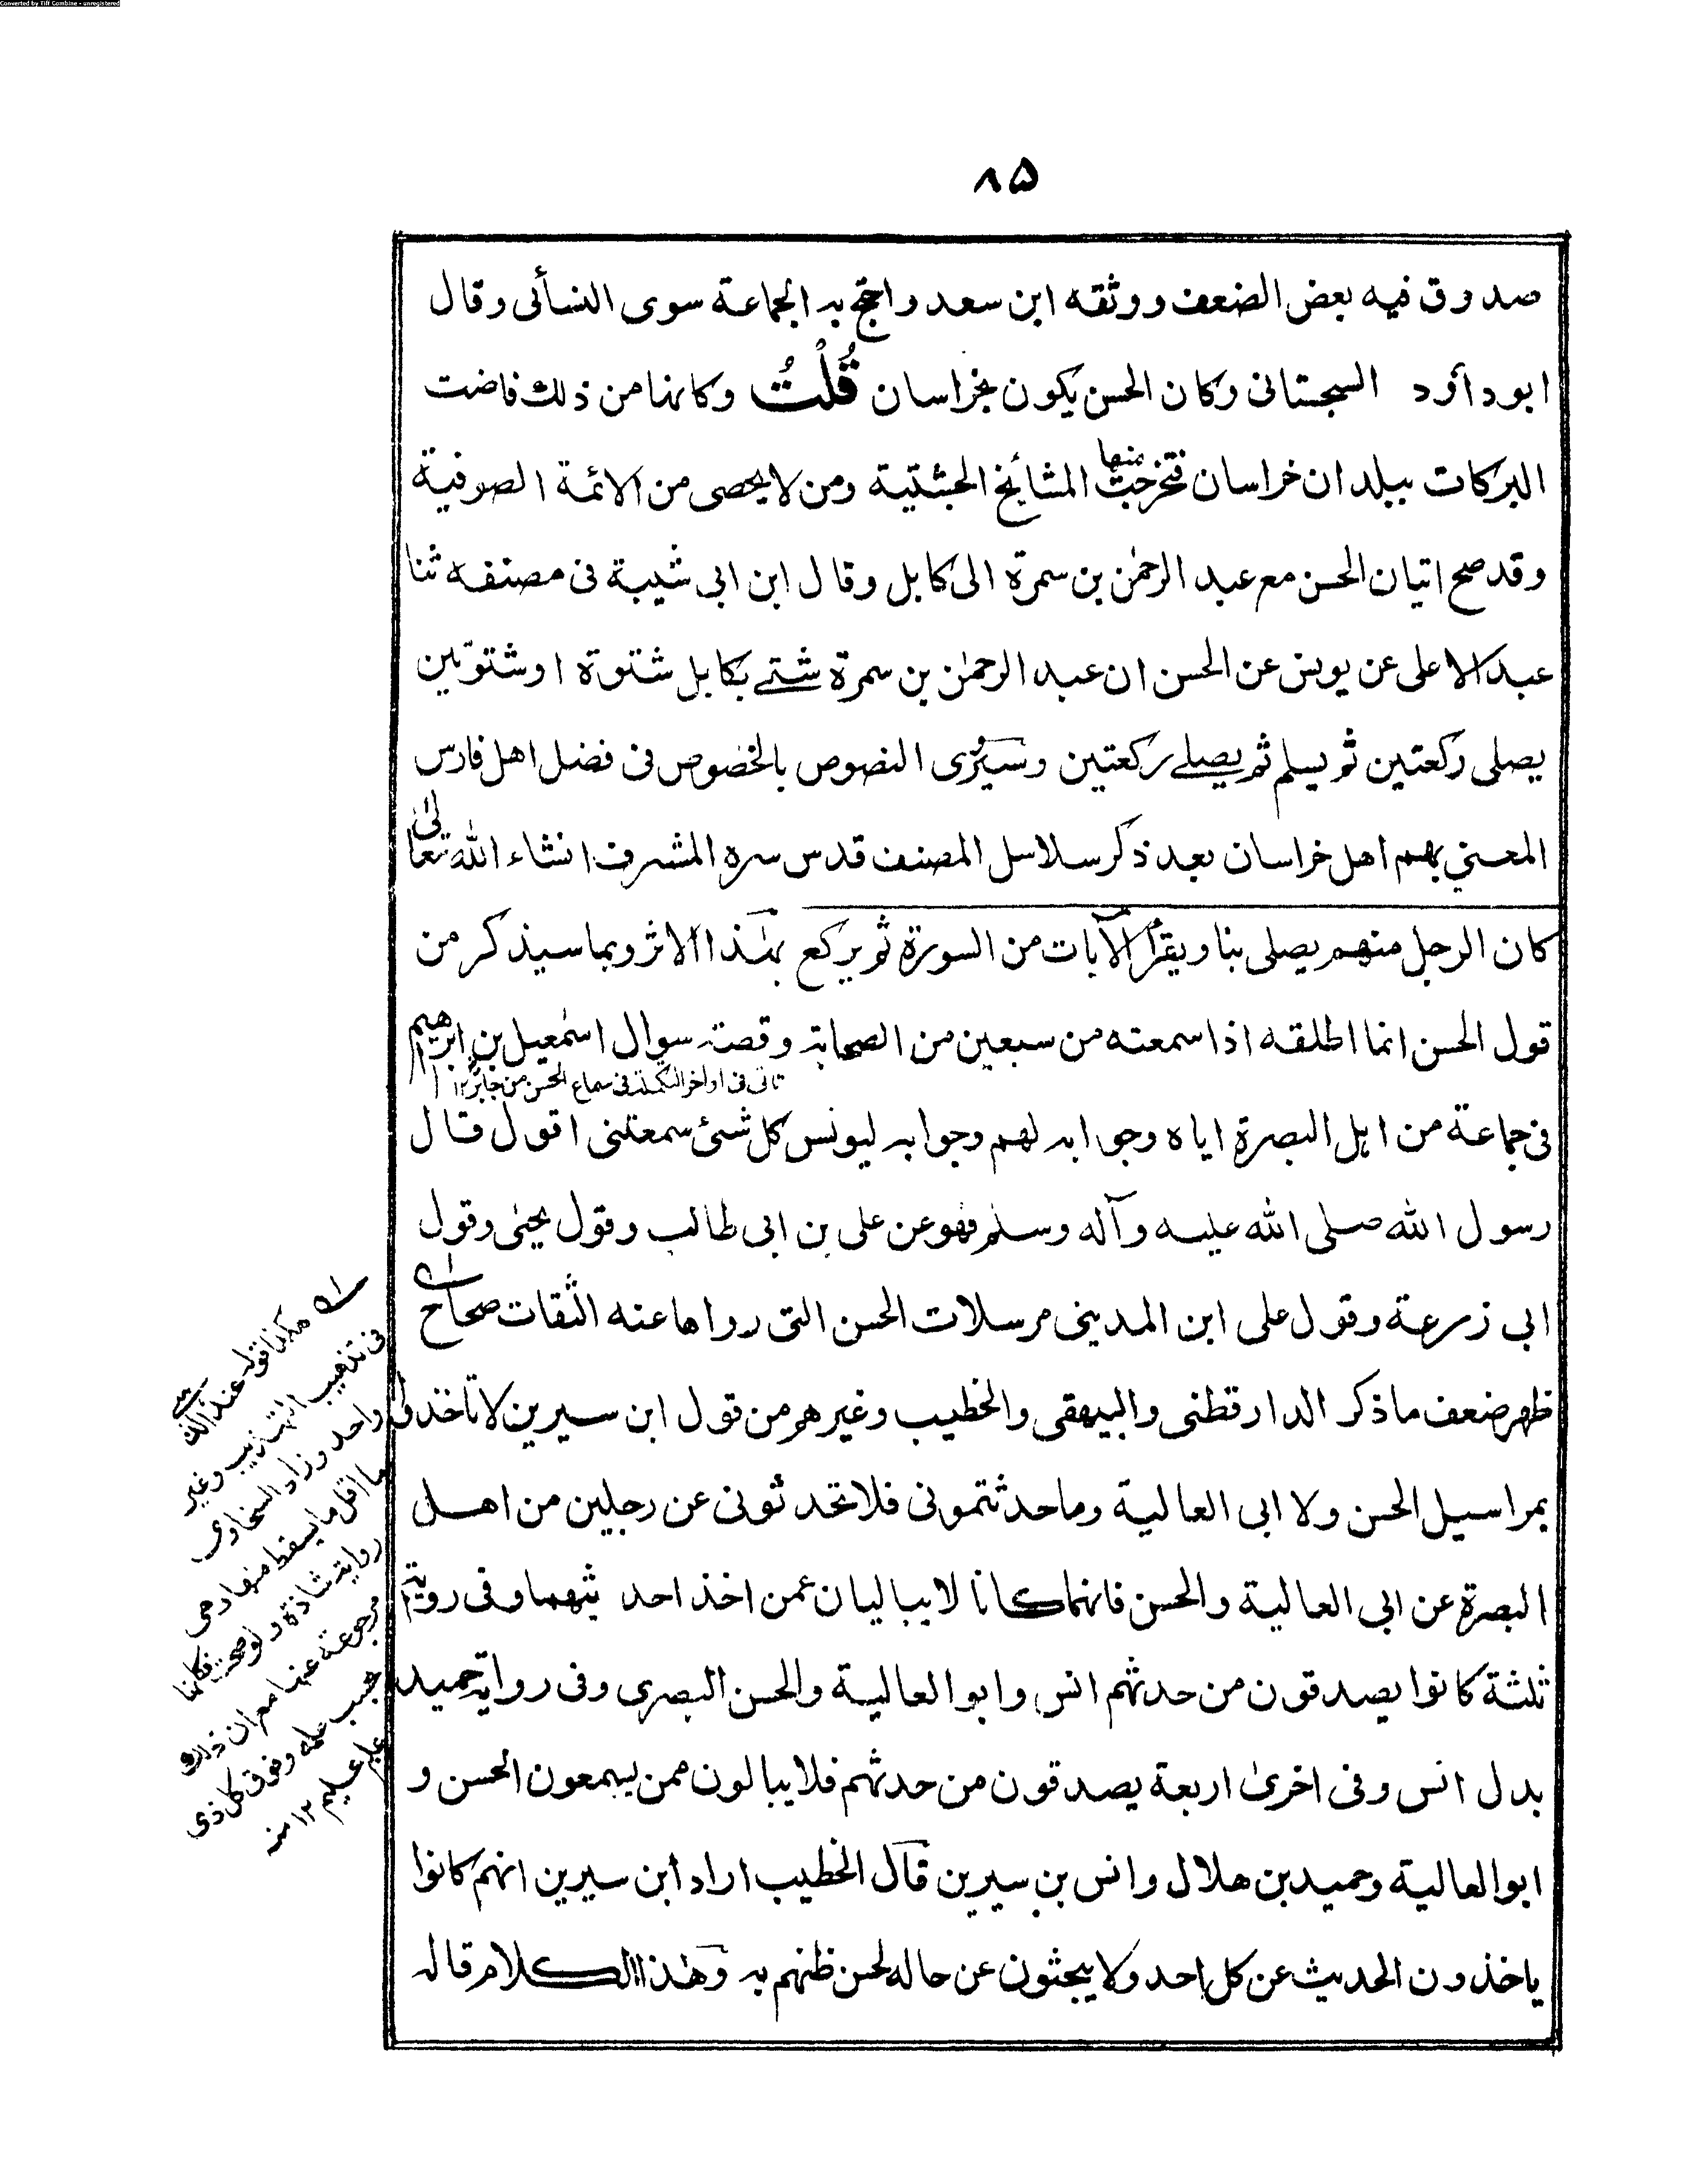 Converted by Tiff Combine - unregistered
۸۵
صدوق فيه بعض الضعف ووثقه ابن سعد واحتج به الجماعة سوى النسأئى وقال
ابوداؤد السجستانى وكان الحسن يكون بخراسان قُلْتُ وكانها من ذلك فاضت
البركات ببلدان خراسان فتخرجت منها المشائخ الچشتية ومن لا يحصى من الائمة الصوفية
وقد صح اتيان الحسن مع عبد الرحمٰن بن سمرة الى كابل وقال ابن ابى شيبة فى مصنفه ثنا
عبد الاعلى عن يونس عن الحسن ان عبد الرحمٰن بن سمرة شتے بكابل شتوة او شتوتين
يصلى ركعتين ثم يسلم ثم يصلے ركعتين وسترى النصوص بالخصوص فى فضل اهل فارس
المعنى بهم اهل خراسان بعد ذكر سلاسل المصنف قدس سره المشرف انشاء الله تعالىٰ
كان الرجل منهم يصلى بنا ويقرأ الآيات من السورة ثم يركع بهٰذا الاثر وبما سيذكر من
قول الحسن انما اطلقه اذا سمعته من سبعين من الصحابة وقصة سوال اسمٰعيل بن ابرهيم
تاتى فى اواخر التكملة فى سماع الحسن من جابر ۱۲
فى جماعة من اہل البصرة اياه وجوابه لهم وجوابه ليونس كل شئ سمعتنى اقول قال
رسول الله صلى الله عليه وآله وسلم فهو عن على بن ابى طالب وقول يحيٰى وقول
ابى زرعة وقول على ابن المدينى مرسلات الحسن التى رواها عنه الثقات صحاح
ظهر ضعف ما ذكر الدارقطنى والبيهقى والخطيب وغيرهم من قول ابن سيرين لا تاخذوا
بمراسيل الحسن ولا ابى العالية وما حدثتمونى فلا تحدثونى عن رجلين من اهل
البصرة عن ابى العالية والحسن فانهما كانا لا يباليان عمن اخذ احد يثهما وفى رواية
ثلثة كانوا يصدقون من حدثهم انس وابو العالية والحسن البصرى وفى رواية حميد
بدل انس وفى اخرىٰ اربعة يصدقون من حدثهم فلا يبالون ممن يسمعون الحسن و
ابو العالية وحميد بن هلال وانس بن سيرين قال الخطيب اراد ابن سيرين انهم كانوا
ياخذون الحديث عن كل احد ولا يبحثون عن حاله لحسن ظنهم به وهٰذا الكلام قاله
هكذا قوله عند
فى تذهيب التهذيب وغير
واحد وزاد السخاوى
ما اقل ما يسقط منها وهى
رواية شاذة ولو صحت فكانها
مرجوعة عنها مع ان ذلك
حسب علمه وفوق كل ذى
علم عليم ۱۲ منه